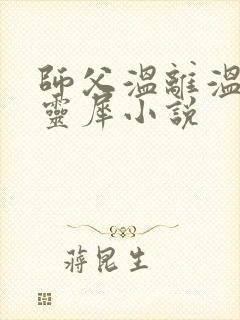 師父溫離溫
靈犀小說
蔣昆生